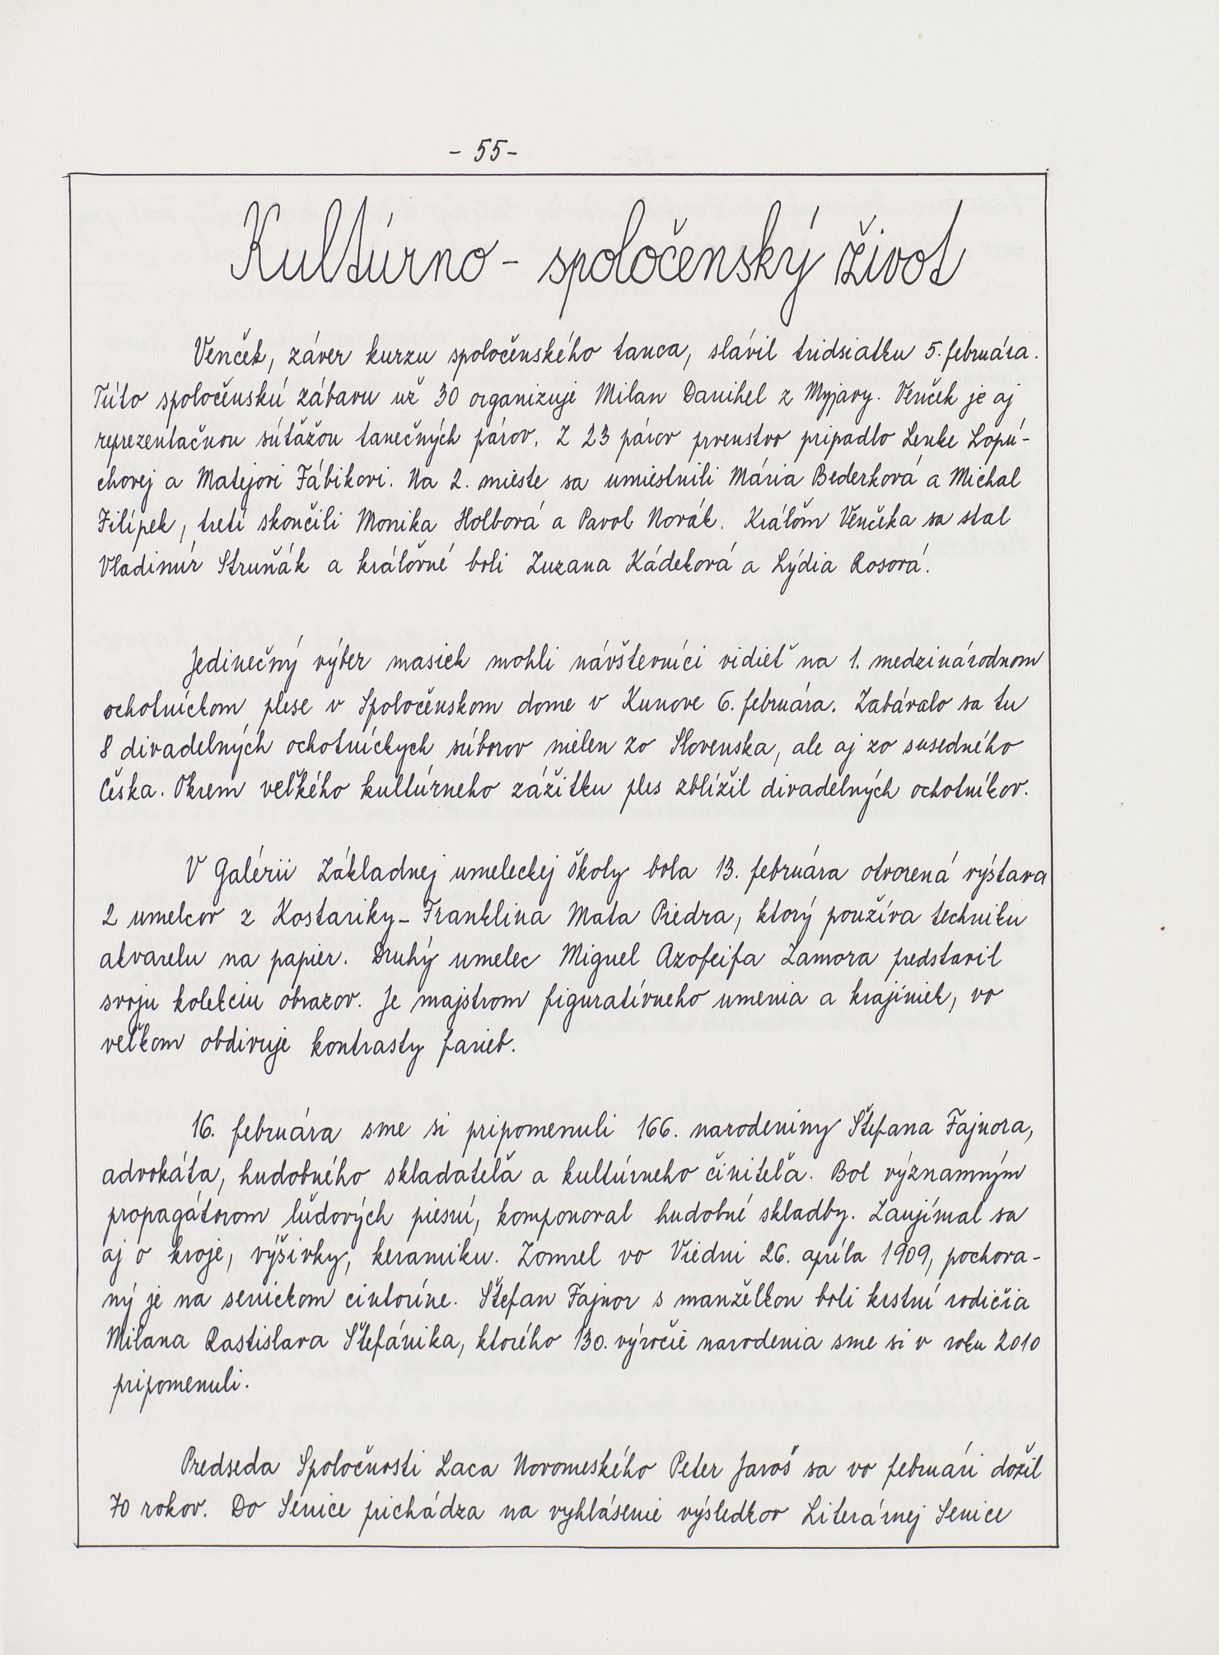 - 55-
Kultúrno - spoločenský život
Venček, záver kurzu spoločenského tanca, slávil tridsiatku 5. februára.
Túto spoločenskú zábavu už 30 organizuje Milan Danihel z Myjavy. Venček je aj
reprezentačnou súťažou tanečných párov. Z 23 párov prvenstvo pripadlo Lenke Lopú-
chovej a Matejovi Fábikovi. Na 2. mieste sa umiestnili Mária Bederková a Michal
Filípek, tretí skončili Monika Holbová a Pavol Novák. Kráľom Venčeka sa stal
Vladimír Struňák a kráľovné boli Zuzana Kádeková a Lýdia Rosová.
Jedinečný výber masiek mohli návštevníci vidieť na 1. medzinárodnom
ochotníckom plese v Spoločenskom dome v Kunove 6. februára. Zabávalo sa tu
8 divadelných ochotníckych súborov nielen zo Slovenska, ale aj zo susedného
Česka. Okrem veľkého kultúrneho zážitku ples zblížil divadelných ochotníkov.
V Galérii Základnej umeleckej školy bola 13. februára otvorená výstava
2 umelcov z Kostariky - Franklina Mata Piedra, ktorý používa techniku
akvarelu na papier. Druhý umelec Miguel Azofeifa Zamora predstavil
svoju kolekciu obrazov. Je majstrom figuratívneho umenia a krajiniek, vo
veľkom obdivuje kontrasty farieb.
16. februára sme si pripomenuli 166. narodeniny Štefana Fajnora,
advokáta, hudobného skladateľa a kultúrneho činiteľa. Bol významným
propagátorom ľudových piesní, komponoval hudobné skladby. Zaujímal sa
aj o kroje, výšivky, keramiku. Zomrel vo Viedni 26. apríla 1909, pochova-
ný je na senickom cintoríne. Štefan Fajnor s manželkou boli krstní rodičia
Milana Rastislava Štefánika, ktorého 130. výročie narodenia sme si v roku 2010
pripomenuli.
Predseda Spoločnosti Laca Novomeského Peter Jaroš sa vo februári dožil
70 rokov. Do Senice prichádza na vyhlásenie výsledkov Literárnej Senice